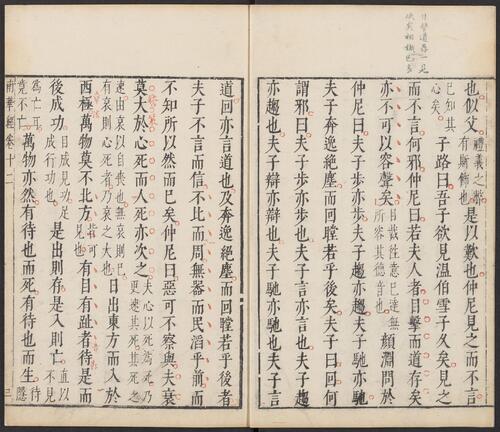 也似父禮義之弊有斯飾也是以歎也仲尼見之而不言
已知其心矣子路曰吾子欲見溫伯雪子久矣見之
而不言何邪仲尼曰若夫人者目擊而道存矣
亦不可以容聲矣目裁往意已達無所容其德音也顏淵問於
仲尼曰夫子步亦步夫子趨亦趨夫子馳亦馳
夫子奔逸絕塵而回瞠若乎後矣夫子曰回何
謂邪曰夫子步亦步也夫子言亦言也夫子趨
亦趨也夫子辯亦辯也夫子馳亦馳也夫子言
道回亦言道也及奔逸絕塵而回瞠若乎後者
夫子不言而信不比而周無器而民滔乎前而
不知所以然而已矣仲尼曰惡可不察與夫哀
莫大於心死而人死亦次之夫心以死為死乃更速其死其死之
速由哀以自喪也無哀則已有哀則心死者乃哀之大也日出東方而入於
西極萬物莫不比方皆可見也有目有趾者待是而
後成功目成見功足成行功也是出則存是入則亡直以不見
為亡耳竟不亡萬物亦然有待也而死有待也而生待隱
南華經卷十二 三